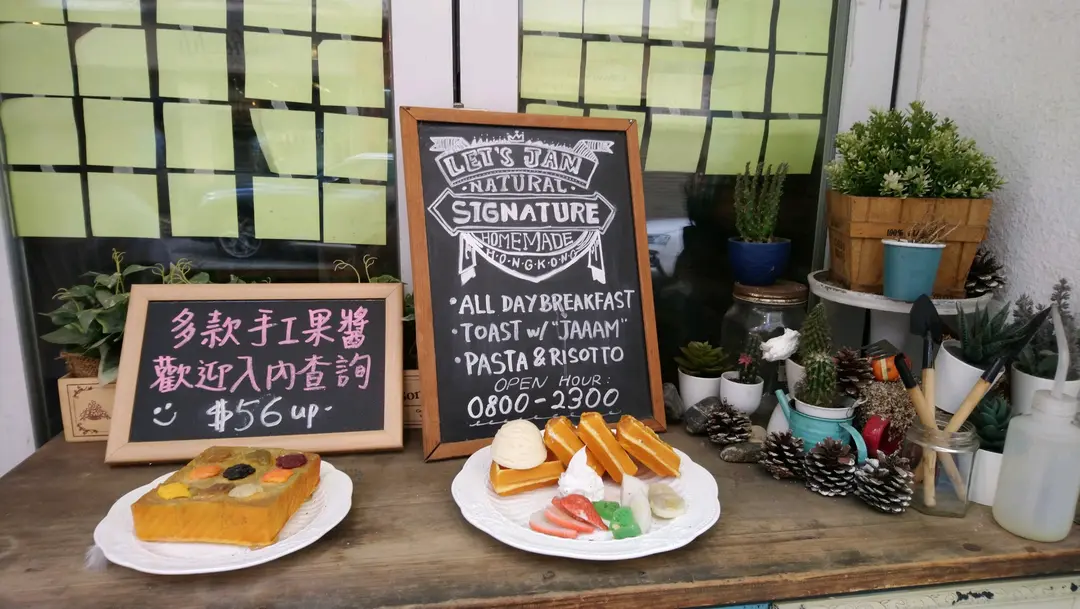 多款手工果醬
歡迎入內查詢
$56 up-
LET'S JAM
·NATURAL·
SIGNATURE
HOMEMADE
H·O·N·G·K·O·N·G
·ALL DAY BREAKFAST
·TOAST w/ "JAAAM"
·PASTA & RISOTTO
OPEN HOUR:
0800-2300
100%